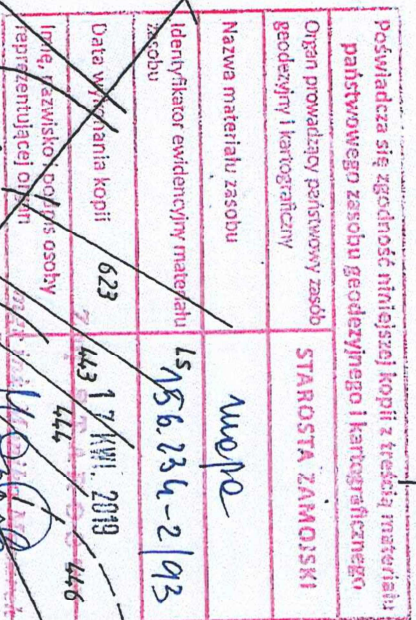 Poświadcza się zgodność niniejszej kopii z treścią materiału
państwowego zasobu geodezyjnego i kartograficznego
Organ prowadzący państwowy zasób
geodezyjny i kartograficzny
STAROSTA ZAMOJSKI
Nazwa materiału zasobu
mapa
Identyfikator ewidencyjny materiału
zasobu
Ls
156.234-2/93
Data wykonania kopii
623
443
17 KWI. 2019
Imię, nazwisko, podpis osoby
reprezentującej organ
444
446